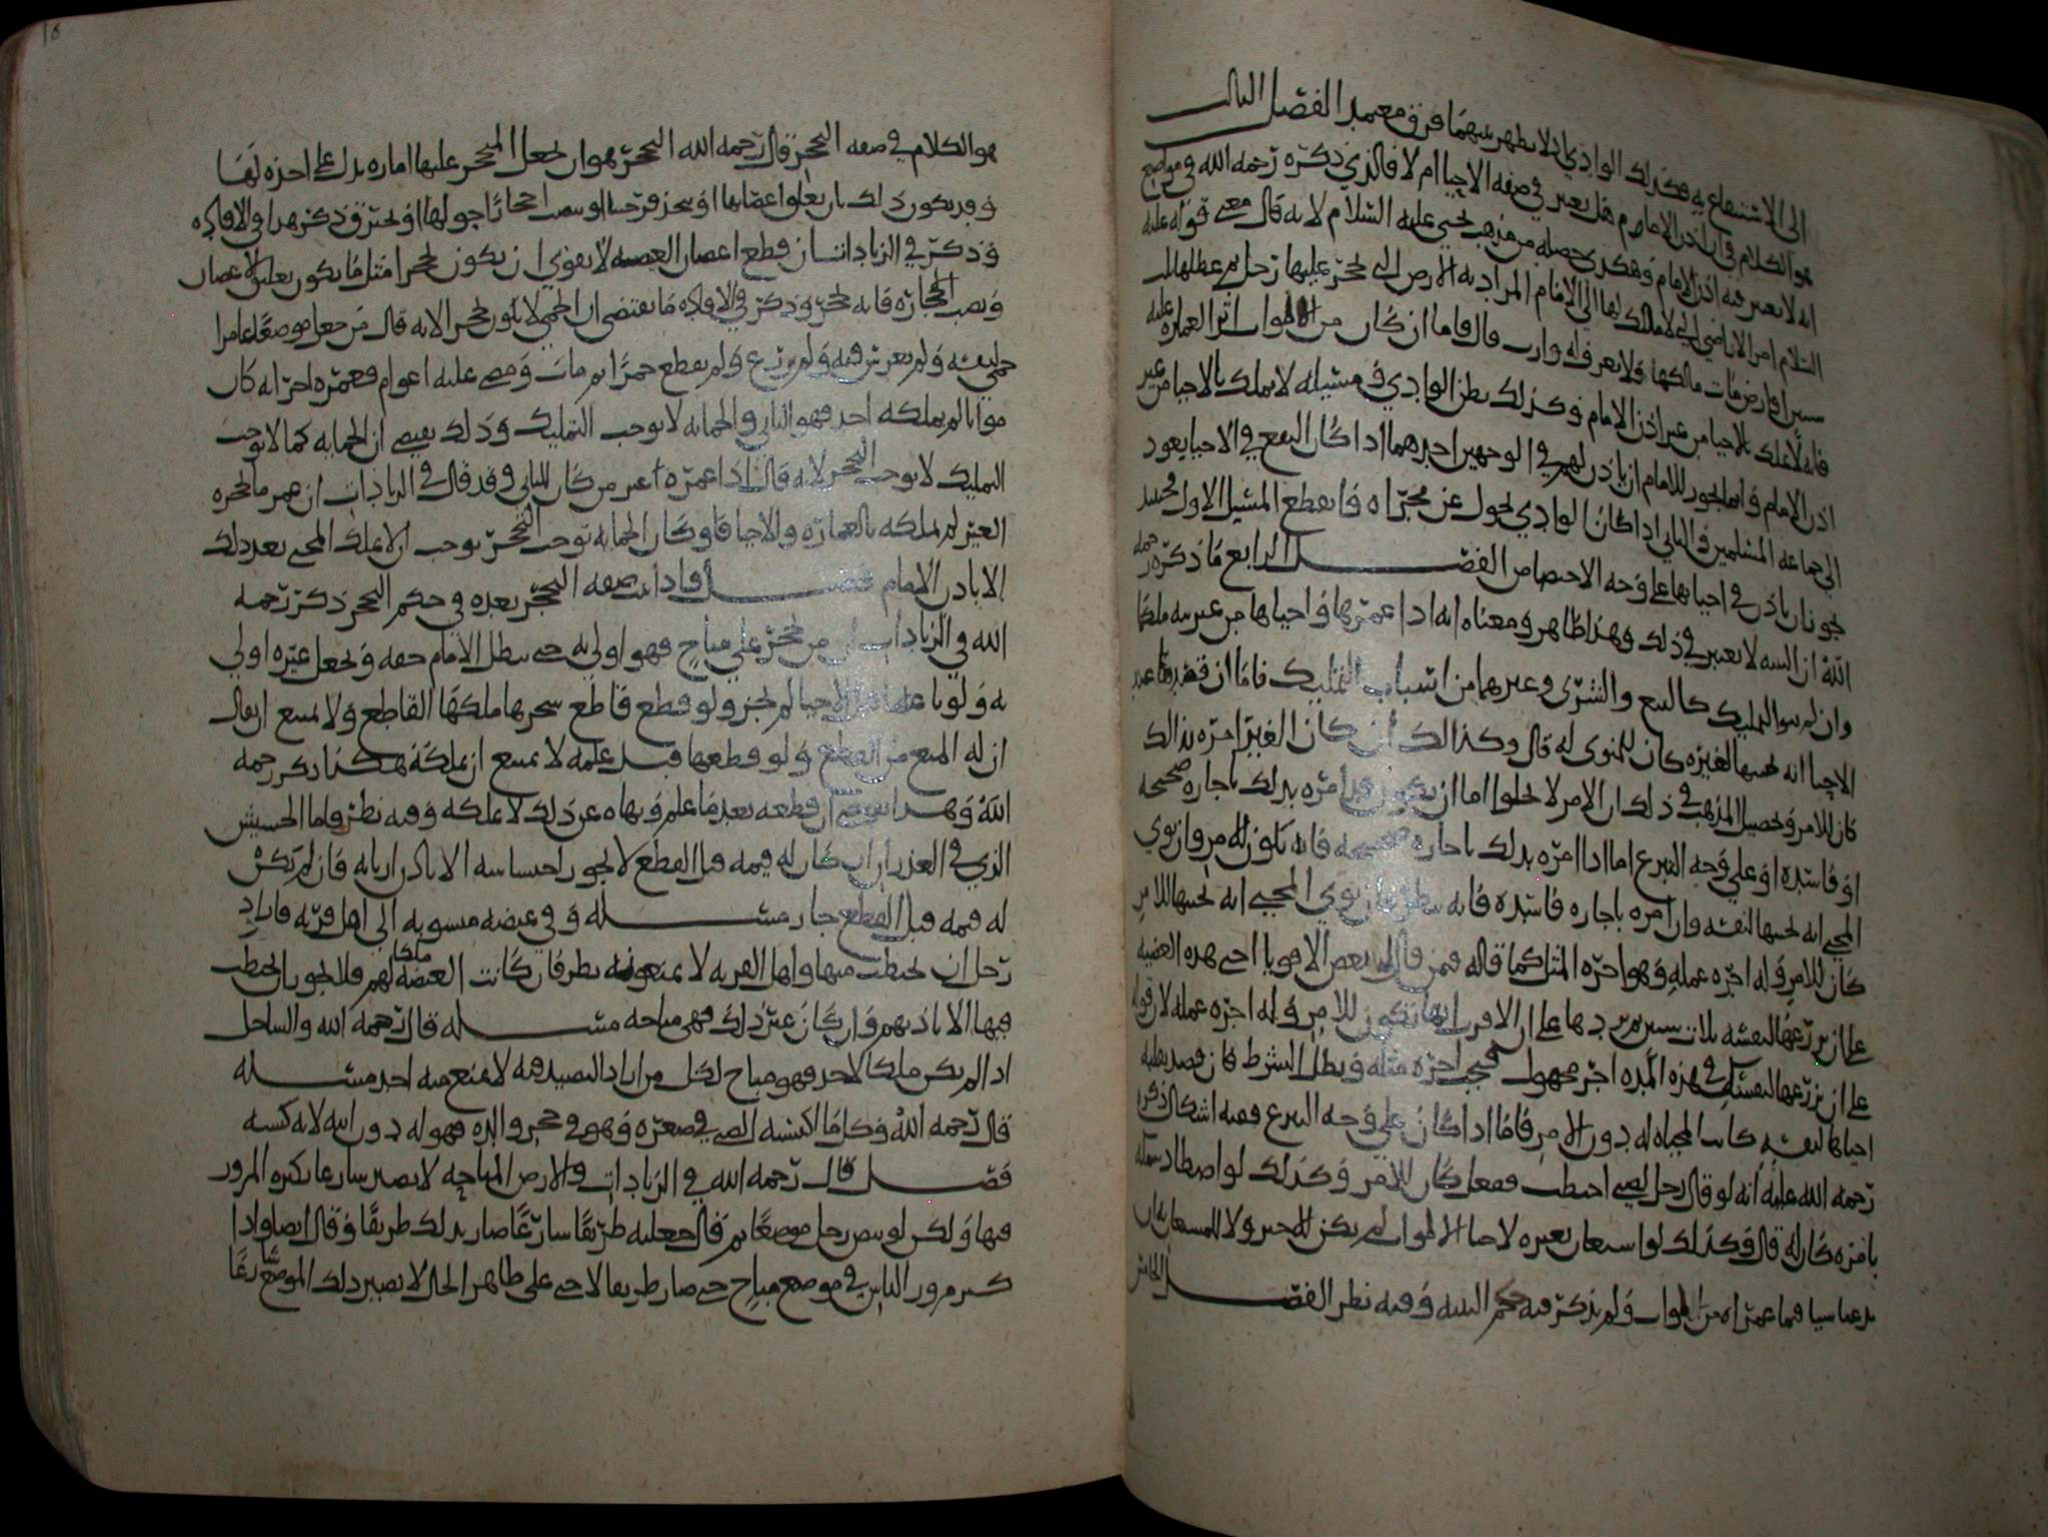 الى الاستنفاع به فكذلك الوادي اذ لا يظهر بينهما فرق معتمد الفصل الثالث
هو الكلام في ان اذن الامام هل يعتبر في صفه الاحيا ام لا فالذي ذكره رحمه الله في مواضع
انه لا يعتبر فيه اذن الامام وهكذى حصله من مذهب يحيى عليه السلام لانه قال معنى قوله عليه
السلام امر الاراضي التي لا مالك لها الى الامام المراد به الارض التي تحجر عليها رجل ثم عطلها ثلث
سنين او ارض مات مالكها ولا يعرف له وارث قال فاما ان كان من الاموات اثر العماره عليه
فانه لا يملك بالاحيا من غير اذن الامام وكذلك بطن الوادي في مسيله لا يملك بالاحيا من غير
اذن الامام وانما يجوز للامام ان ياذن لهم في الوجهين احدهما اذا كان النفع في الاحيا يعود
الى جماعه المسلمين والثاني اذا كان الوادي تحول عن مجراه وانقطع المسيل الاول فحينئذ
يجوز ان ياذن في احيائها على وجه الاختصاص الفصل الرابع ما ذكره رحمه
الله ان النيه لا تعتبر في ذلك وهذا ظاهر ومعناه انه اذا عمرها واحياها من غير نيه ملكها
وان لم ينو التمليك كالبيع والشرى وغيرهما من اسباب التمليك فاما ان قصد عند
الاحيا انه يحييها لغيره كان للمنوي له قال وكذالك ان كان الغير اجره بذالك
كان للامر وتحصيل المذهب في ذلك ان الامر لا يخلوا اما ان يكون قد امره بذلك باجاره صحيحه
او فاسده او على وجه التبرع اما اذا امره بذلك باجاره صحيحه فانه يكون للامر وان نوى
المحيي انه يحييها لنفسه وان امره باجاره فاسده فانه ينظر فان نوى المحيي انه يحييها للامر
كان للامر وله اجره عمله وهو اجره المثل كما قاله فمن قال له بعض الاقويا احي هذه الغيضه
على ان يزرعها لنفسه ثلاث سنين ثم يردها على ان الاقرب انها تكون للامر وله اجره عمله لان قوله
على ان يزرعها لنفسه في هذه المده اجر مجهول فتجب اجره مثله ويبطل الشرط فان قصد بقلبه
احياها لنفسه كانت المحياه له دون الامر فاما اذا كان على وجه التبرع ففيه اشكال ذكره
رحمه الله عليه انه لو قال رجل لصبي احتطب ففعل كان للامر وكذلك لو اصطاد سمكه
بامره كان له قال وكذلك لو استعان بغيره لاحيا الاموات لم يكن للمعين ولا للمستعان به ان
يدعيا شيا فيما عمراه من الموات ولم يذكر فيه حكم النيه وفيه نظر الفصل الخامس
هو الكلام في صفه التحجر قال رحمه الله التحجر هو ان يجعل المتحجر عليها اماره تدل على اخذه لها
وقد يكون ذلك بان يعلق اغصانها او يحفر فيه خندقا او ينصب احجارا حولها او يحترق ذكر هذا في الافاده
وذكر في الزيادات ان قطع اغصان الغيضه لا يقوى ان يكون تحجرا مثل ما يكون بعليق الاغصان
ونصب الحجاره فانه تحجر وذكر في الافاده ما يقتضي ان الحمى لا يكون تحجرا لانه قال من جعل موضعا عامرا
حمى لنفسه ولم يغرس فيه ولم يزرع ولم يقطع حمرا ثم مات ومضى عليه اعوام فعمره اخر انه كان
مواتا لم يملكه احد فهو للثاني والحمايه لا توجب التمليك وذلك يقتضي ان الحمايه كما لا توجب
التمليك لا توجب التحجر لانه قال اذا عمره اخر من كان للثاني وقد قال في الزيادات ان عمر ما تحجره
الغير لم يملكه بالعماره والاحيا فلو كان الحمايه توجب التحجر توجب ان لا يملك المحيي بعد ذلك
الا باذن الامام فصل واذا ثبت صفه التحجر بعده في حكم التحجر ذكر رحمه
الله في الزيادات ان من تحجر على مباح فهو اولى به حتى يبطل الامام حقه ويجعل غيره اولى
به ولو باعه قبل الاحيا لم يجز ولو قطع قاطع شجرها ملكها القاطع ولا يمتنع ان يقال
ان له المنع من القطع ولو قطعها قبل علمه لا يمتنع ان يملكه هكذا ذكر رحمه
الله وهذا يقتضي ان قطعه بعد ما علم ونهاه عن ذلك لا يملكه وفيه نظر فاما الحشيش
الذي في الغدران ان كان له قيمه قبل القطع لا يجوز احتشاشه الا باذن اربابه فان لم تكن
له قيمه قبل القطع جاز مسله وفي غيضه منسوبه الى اهل قريه فاراد
رجل ان يحتطب منها واهل القريه لا يمنعونه ينظر فان كانت الغيضه ملكا لهم فلا يجوز ان يحتطب
فيها الا باذنهم وان كان غير ذلك فهي مباحه مسله قال رحمه الله والساحل
اذا لم يكن ملكا لاحد فهو مباح لكل من اراد التصيد فيه لا يمنع منه احد مسله
قال رحمه الله وكل ما اكتسبه الصبي في صغره وهو في حجر والده فهو له دون ابيه لانه كسبه
فصل قال رحمه الله في الزيادات والارض المباحه لا تصير شارعا بكثره المرور
فيها ولكن لو بيض رجل موضعا ثم قال جعلته طريقا شارعا صار بذلك طريقا وقال ايضا واذا
كثر مرور الناس في موضع مباح حتى صار طريقا لاحبا على ظاهر الحال لا يصير ذلك الموضع شارعا